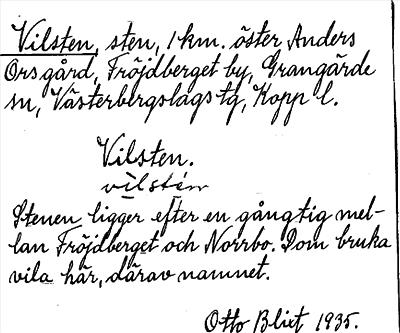 Vilsten, sten, 1 km. öster Anders
Ors gård, Fröjdberget by, Grangärde
sn, Västerbergslags tg, Kopp l.
Vilsten.
vìlstén
Stenen ligger efter en gångtig mel-
lan Fröjdberget och Norrbo. Dom bruka
vila här, därav namnet.
Otto Blixt 1935.